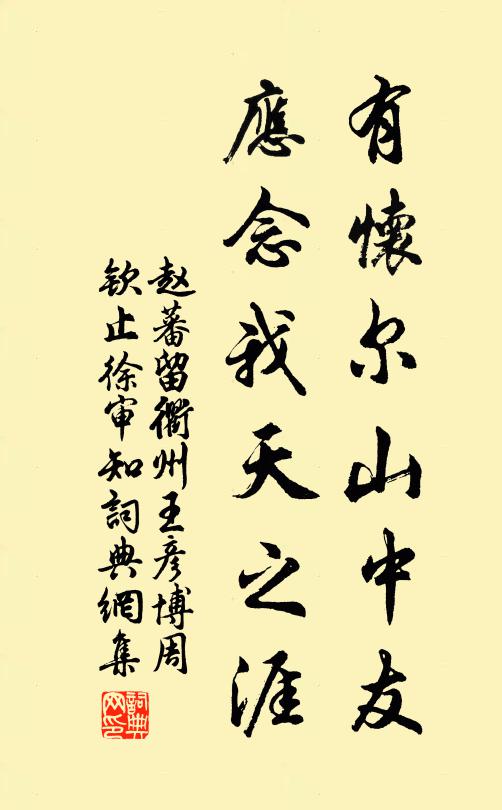 有懷尔山中友
應念我天之涯
赵蕃留衢州王彦博周
钦止徐审知詞典網集
詞典
网印